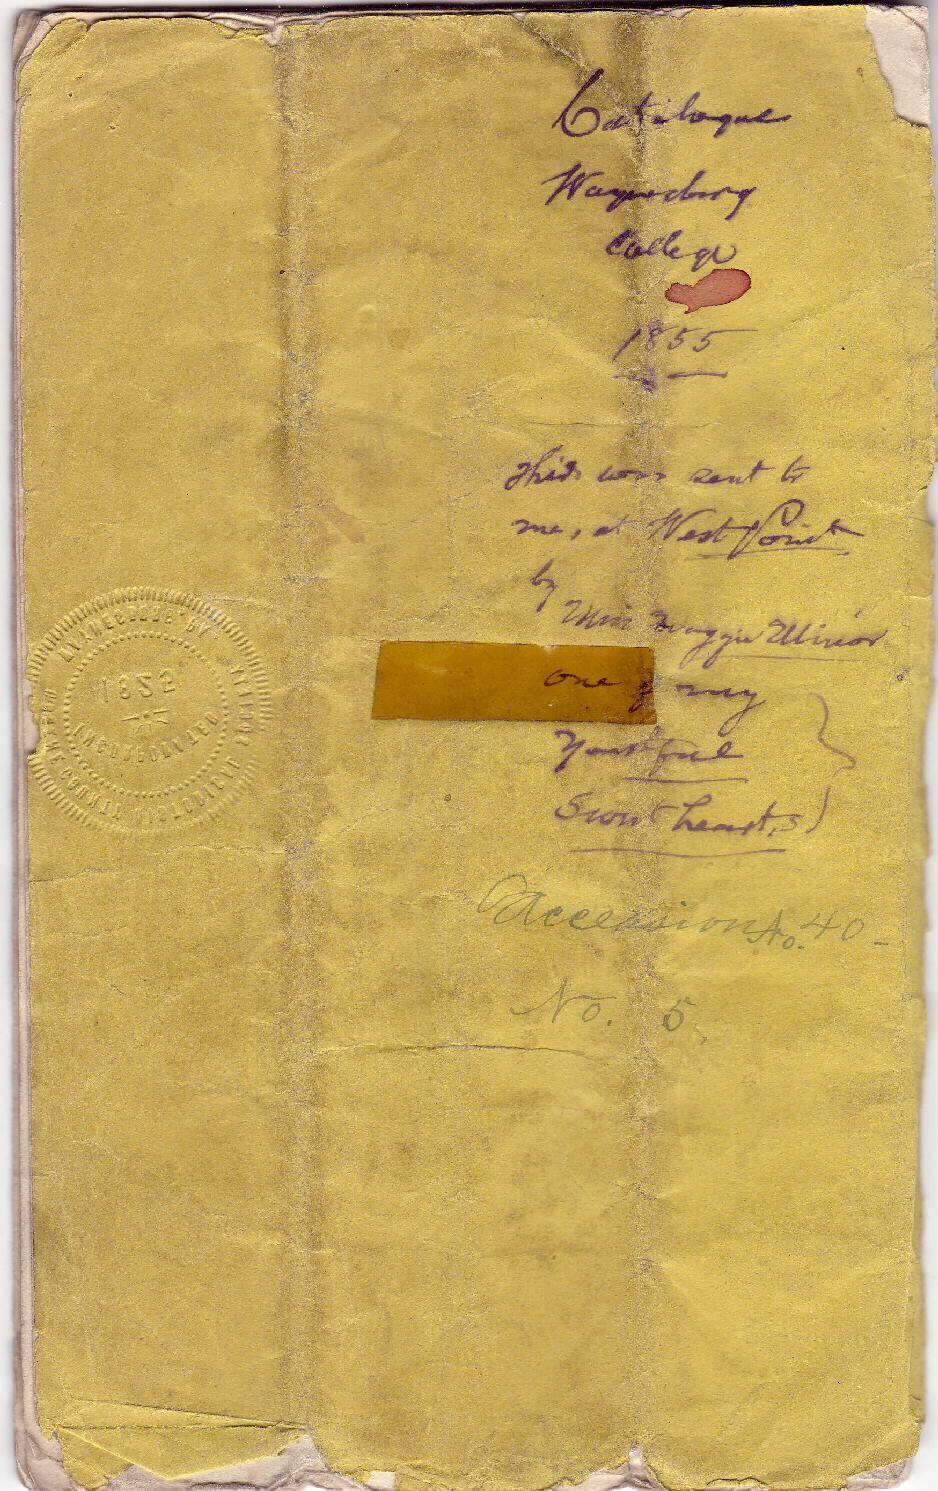 Catalogue
Waynesburg
College
1855
This was sent to
me, at West Point
by
Miss Maggie Minor
one of my
Youthful
Sweet hearts
Accession No. 40-
No. 5.
1852
INCORPORATED